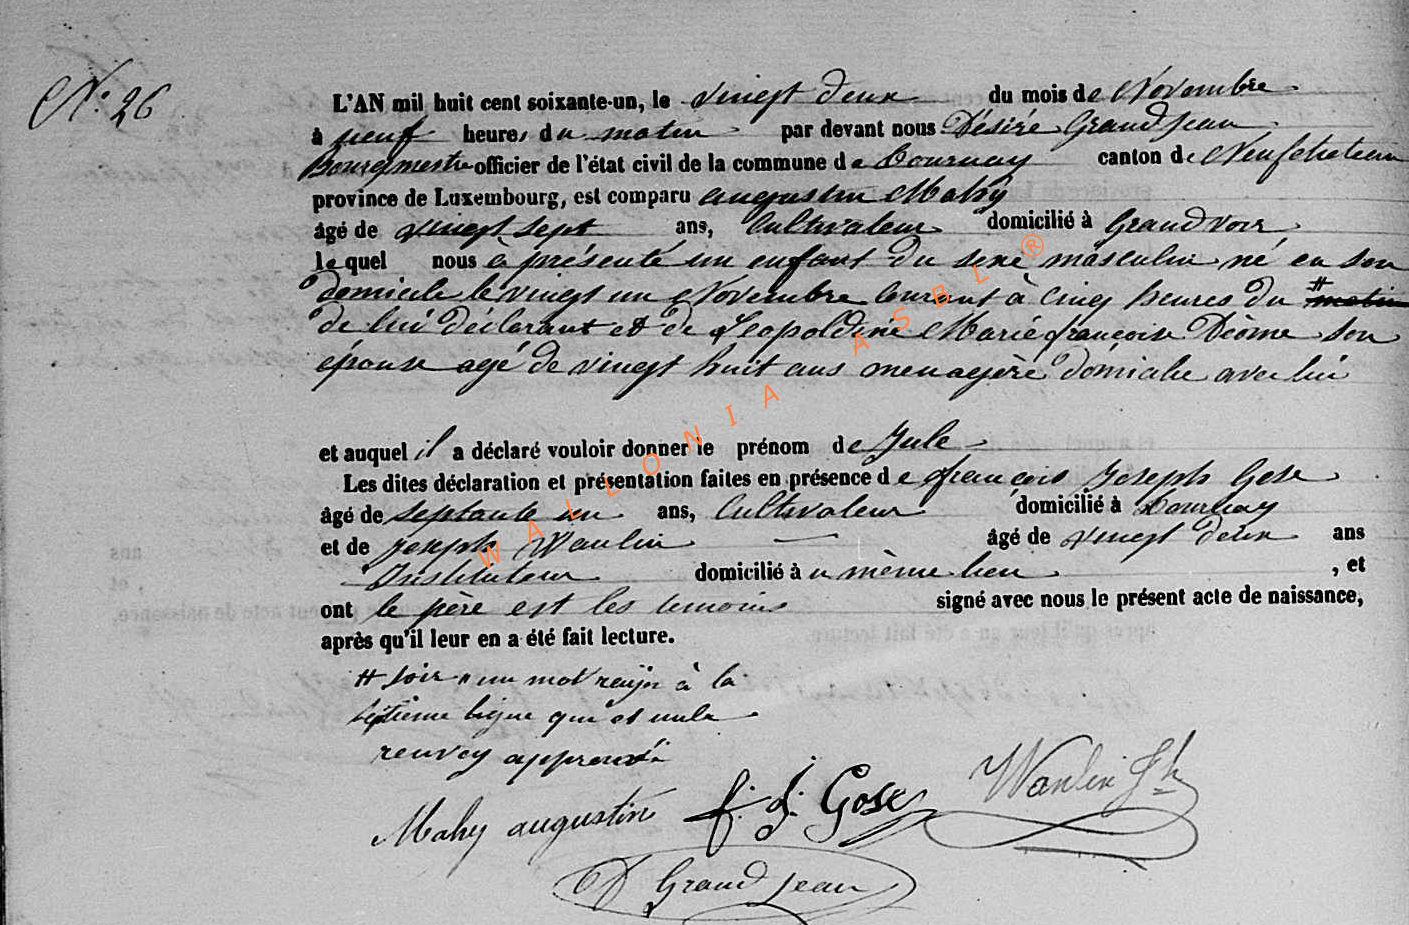 N° 26
L'AN mil huit cent soixante-un, le vingt deux du mois de Novembre
à neuf heures du matin par devant nous Désiré Grandjean
Bourgmestre officier de l'état civil de la commune de Tournay canton de Neufchateau
province de Luxembourg, est comparu augustin Mahy
âgé de vingt sept ans, Cultivateur domicilié à Grandvoir
lequel nous à présenté un enfant du sexe masculin né en son
domicile le vingt un Novembre courant à cinq heures du # matin
de lui déclarant et de Léopoldine Marie françoise Diôme son
épouse agé de vingt huit ans menagère domicilie avec lui
et auquel il a déclaré vouloir donner le prénom de Jule
Les dites déclaration et présentation faites en présence de françois Joseph Gose
âgé de septante un ans, Cultivateur domicilié à Tournay
et de Joseph Wanlin âgé de vingt deux ans
Instituteur domicilié à u même lieu , et
ont le père est les temoins signé avec nous le présent acte de naissance,
après qu'il leur en a été fait lecture.
# soir un mot rayé à la
septième ligne qui est nulle
renvoy approuvé
Mahy augustin f. J. Gose Wanlin Jh
D Grandjean
WALLONIA ASBL ®